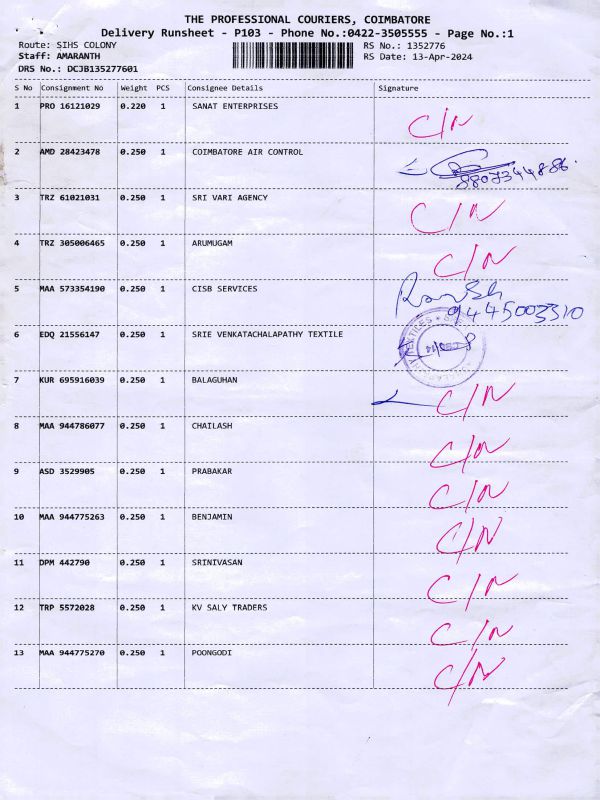 THE PROFESSIONAL COURIERS, COIMBATORE
Delivery Runsheet - P103 - Phone No.:0422-3505555 - Page No.:1
Route: SIHS COLONY RS No.: 1352776
Staff: AMARANTH RS Date: 13-Apr-2024
DRS No.: DCJB135277601
S No Consignment No Weight PCS Consignee Details Signature
1 PRO 16121029 0.220 1 SANAT ENTERPRISES C/N
2 AMD 28423478 0.250 1 COIMBATORE AIR CONTROL 8807344886
3 TRZ 61021031 0.250 1 SRI VARI AGENCY C/N
4 TRZ 305006465 0.250 1 ARUMUGAM C/N
5 MAA 573354190 0.250 1 CISB SERVICES 9445003310
6 EDQ 21556147 0.250 1 SRIE VENKATACHALAPATHY TEXTILE TEXTILES
7 KUR 695916039 0.250 1 BALAGUHAN C/N
8 MAA 944786077 0.250 1 CHAILASH C/N
9 ASD 3529905 0.250 1 PRABAKAR C/N
10 MAA 944775263 0.250 1 BENJAMIN C/N
11 DPM 442790 0.250 1 SRINIVASAN C/N
12 TRP 5572028 0.250 1 KV SALY TRADERS C/N
13 MAA 944775270 0.250 1 POONGODI C/N